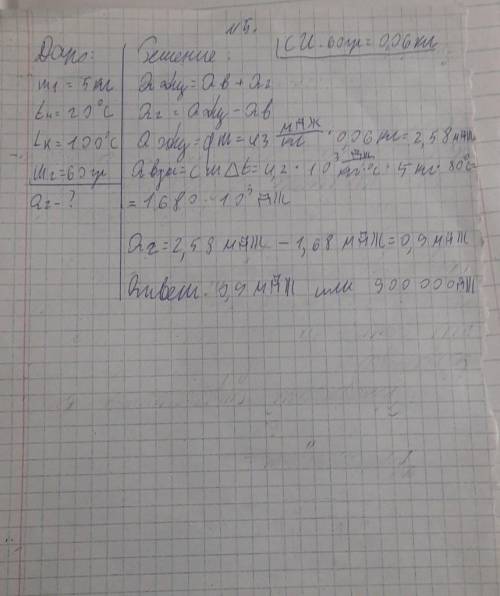 N 5.
Дано:
m1 = 5 кг
tн = 20°C
tк = 100°C
mг = 60 гр
Qг - ?
Решение:
СИ. 60 гр = 0,06 кг
Q жц = Qв + Qг
Qг = Q жц - Qв
Q жц = qm = 43 мДж/кг · 0,06 кг = 2,58 мДж
Q в = cmΔt = 4,2 · 10³ Дж/кг·°C · 5 кг · 80°C
= 1680 · 10³ Дж
Qг = 2,58 мДж - 1,68 мДж = 0,9 мДж
Ответ. 0,9 мДж или 900 000 Дж